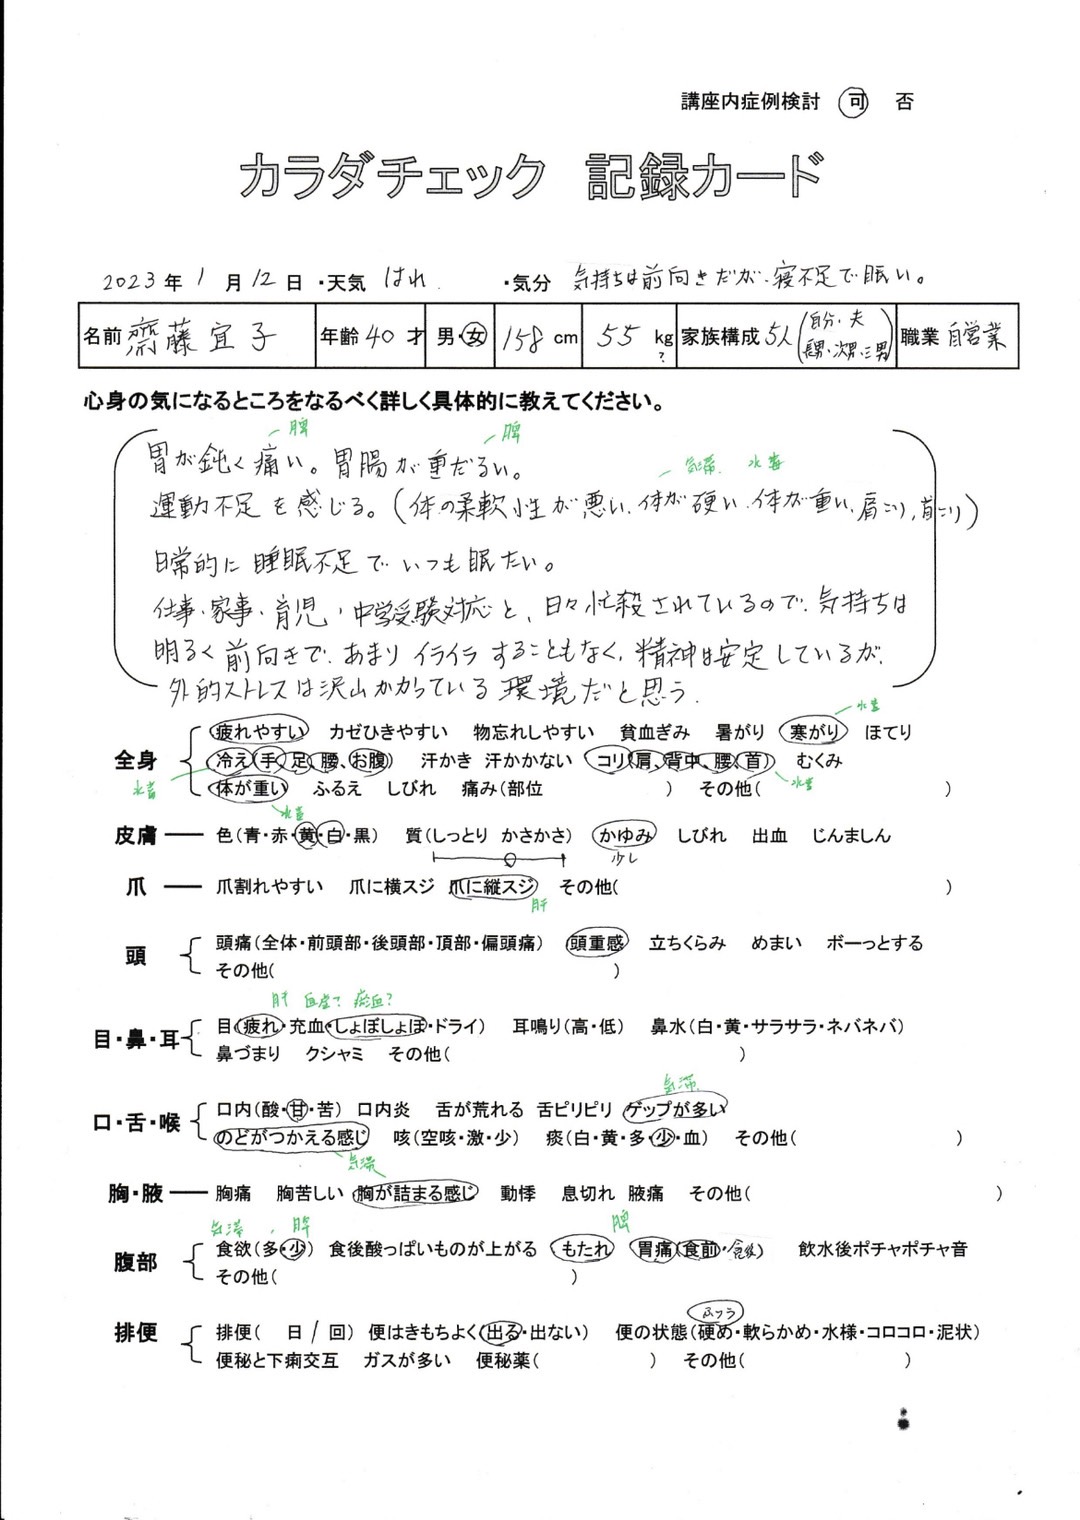 講座内症例検討 可 否
カラダチェック 記録カード
2023年1月12日 ・天気 はれ ・気分 気持ちは前向きだが、寝不足で眠い。
名前 齋藤宜子 年齢40才 男・女 158cm 55kg ? 家族構成 5人(自分・夫 長男・次男・三男) 職業 自営業
心身の気になるところをなるべく詳しく具体的に教えてください。
脾 脾
胃が鈍く痛い。胃腸が重だるい。
気滞、水毒
運動不足を感じる。(体の柔軟性が悪い、体が硬い、体が重い、肩こり、首こり)
日常的に睡眠不足でいつも眠たい。
仕事、家事、育児、中学受験対応と、日々忙殺されているので、気持ちは
明るく前向きで、あまりイライラすることもなく、精神は安定しているが、
外的ストレスは沢山かかっている環境だと思う。
水毒
全身 疲れやすい カゼひきやすい 物忘れしやすい 貧血ぎみ 暑がり 寒がり ほてり
冷え(手、足、腰、お腹) 汗かき 汗かかない コリ(肩、背中、腰、首) むくみ
水毒 水毒
体が重い ふるえ しびれ 痛み(部位 ) その他( )
水毒
皮膚 色(青・赤・黄・白・黒) 質(しっとり かさかさ) かゆみ しびれ 出血 じんましん
少し
爪 爪割れやすい 爪に横スジ 爪に縦スジ その他( )
肝
頭 頭痛(全体・前頭部・後頭部・頂部・偏頭痛) 頭重感 立ちくらみ めまい ボーっとする
その他( )
肝 血虚? 瘀血?
目・鼻・耳 目(疲れ・充血・しょぼしょぼ・ドライ) 耳鳴り(高・低) 鼻水(白・黄・サラサラ・ネバネバ)
鼻づまり クシャミ その他( )
気滞
口・舌・喉 口内(酸・甘・苦) 口内炎 舌が荒れる 舌ピリピリ ゲップが多い
のどがつかえる感じ 咳(空咳・激・少) 痰(白・黄・多・少・血) その他( )
気滞
胸・腋 胸痛 胸苦しい 胸が詰まる感じ 動悸 息切れ 腋痛 その他( )
気滞、脾 脾
腹部 食欲(多・少) 食後酸っぱいものが上がる もたれ 胃痛(食前・食後) 飲水後ポチャポチャ音
その他( )
ふつう
排便 排便( 日/回) 便はきもちよく(出る・出ない) 便の状態(硬め・軟らかめ・水様・コロコロ・泥状)
便秘と下痢交互 ガスが多い 便秘薬( ) その他( )